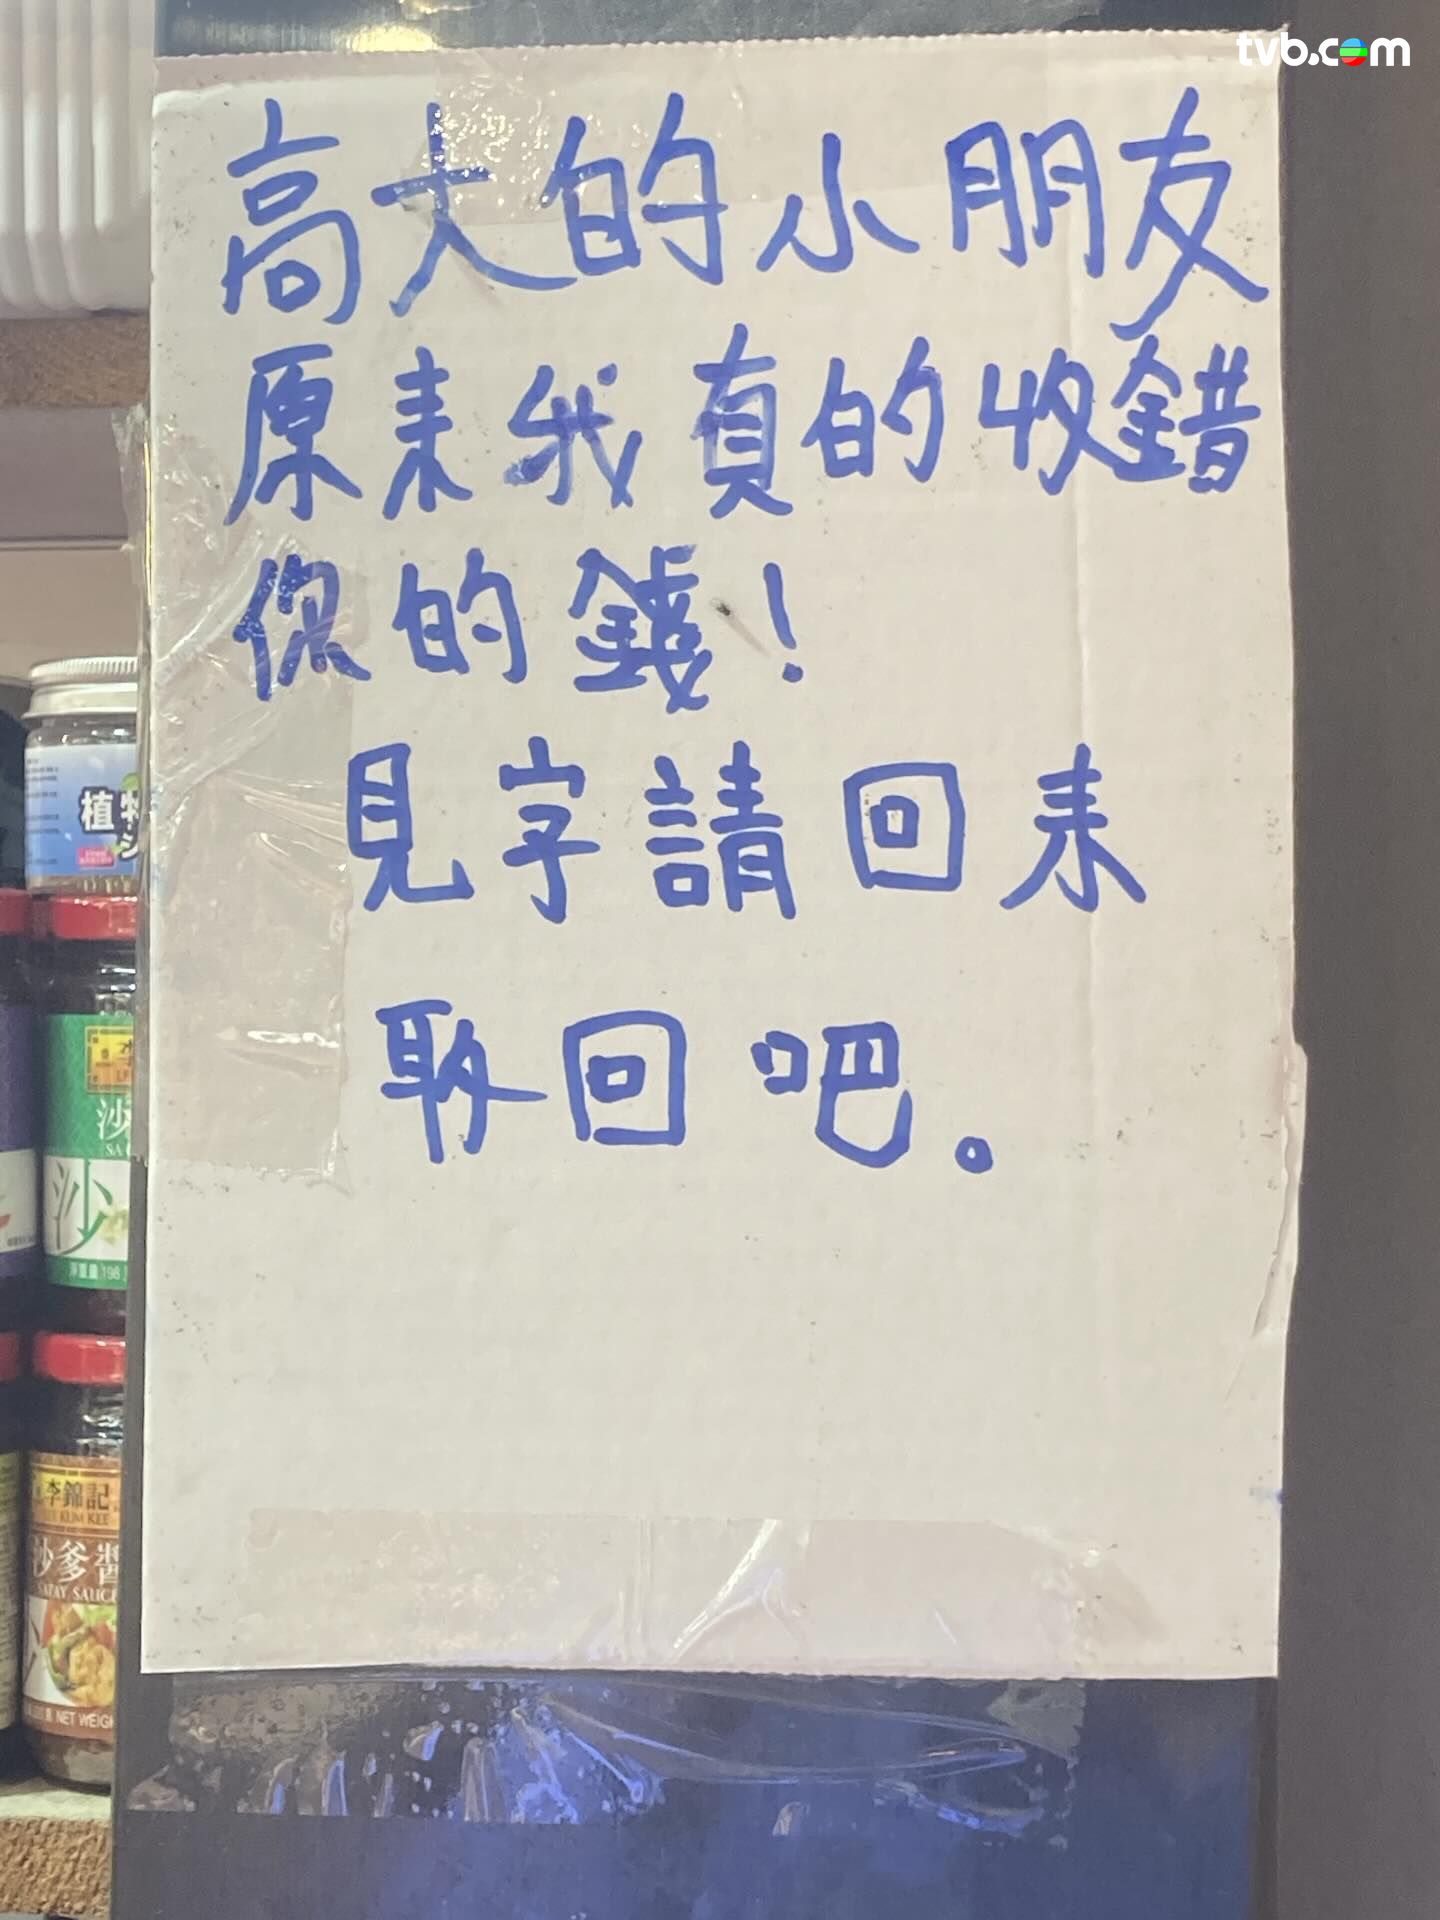 tvb.com
高大的小朋友
原來我真的收錯
你的錢！
見字請回來
取回吧。
植物
沙
SA
沙
淨重量 198
李錦記
LEE KUM KEE
沙爹醬
SATAY SAUCE
NET WEIGH